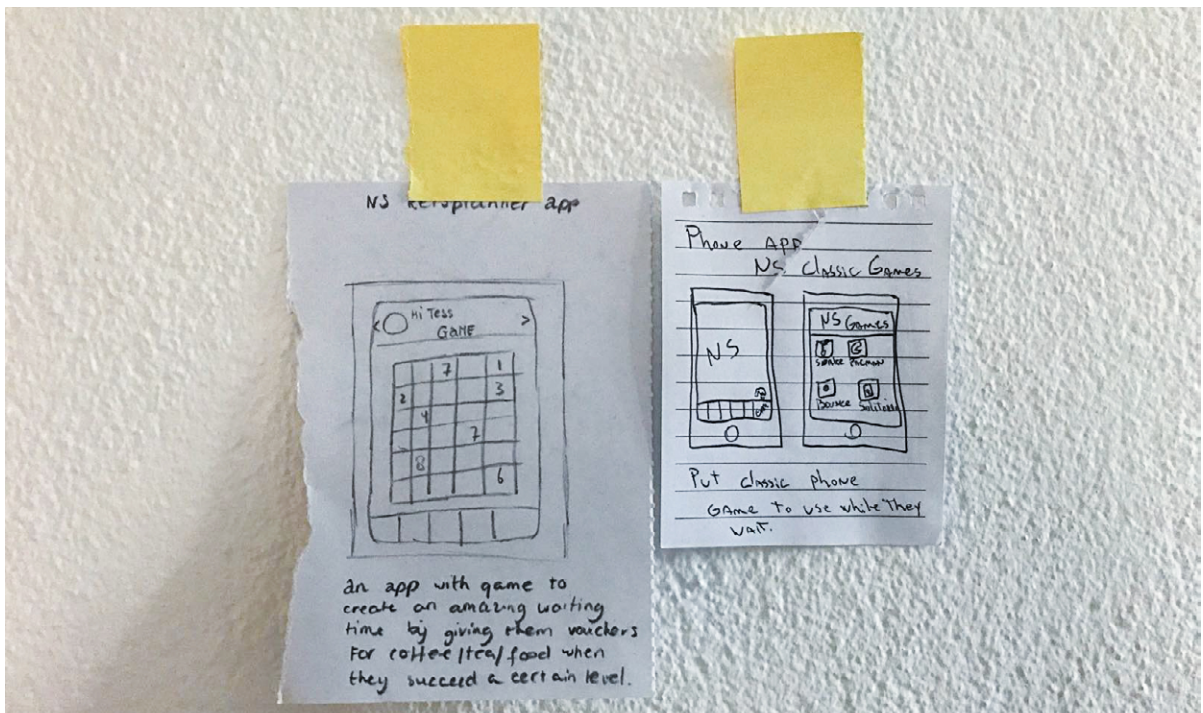 NS Reisplanner app
Hi Tess
GAME
7 1
2 3
4
7
8
6
an app with game to
create an amazing waiting
time by giving them vouchers
For coffee/tea/food when
they succeed a certain level.
Phone App
NS Classic Games
NS
NS Games
Snake Pacman
Bounce Solitaire
Put classic phone
Game to use while They
wait.